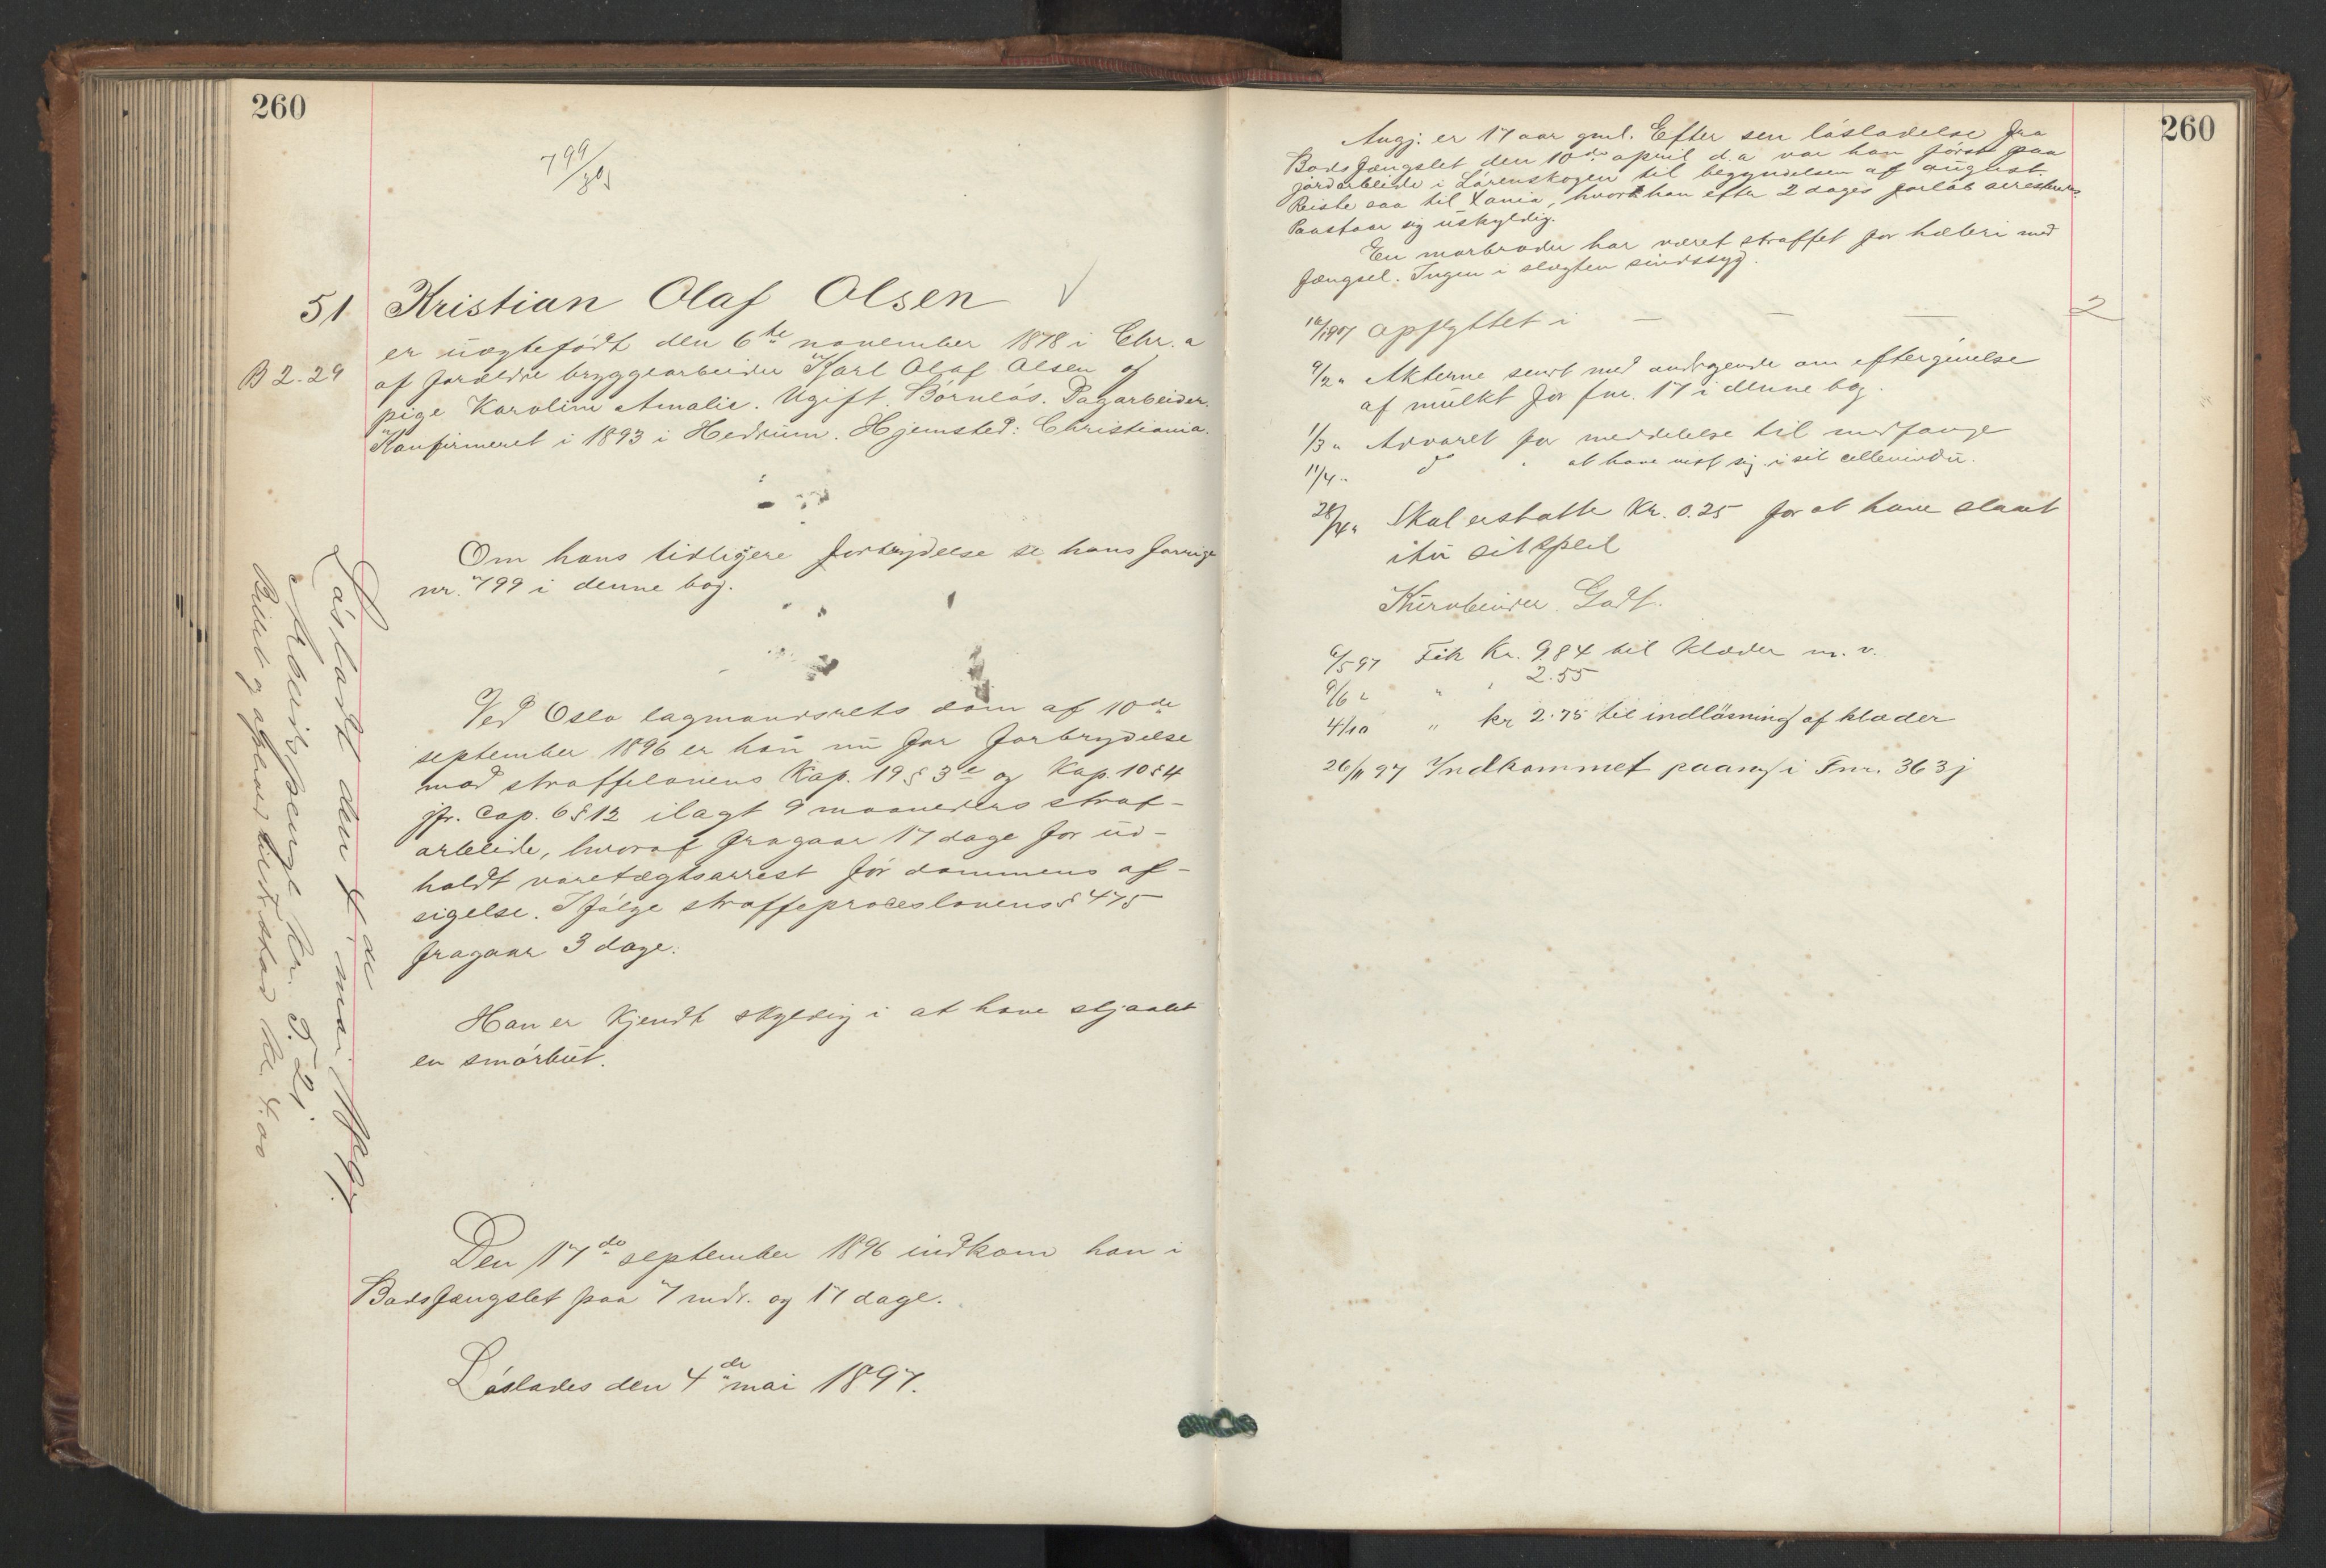 260
799/96
51 Kristian Olaf Olsen
er uægtefødt den 6te november 1878 i Chr.a
B 2.29 af forældre bryggearbeider Karl Olaf Olsen og
pige Karoline Amalie. Ugift. Børnløs. Dagarbeider.
Konfirmeret i 1893 i Hedrum. Hjemsted: Christiania.
Om hans tidligere forbrydelse se hans forrige
nr. 799 i denne bog.
Ved Oslo lagmandsrets dom af 10de
september 1896 er han nu for forbrydelse
mod straffelovens Kap. 19 § 3 og Kap. 10 § 4
jfr. Cap. 6 § 12 ilagt 9 maaneders straf-
arbeide, hvoraf fragaar 17 dage for ud-
holdt varetægtsarrest før dommens af-
sigelse. Ifølge straffeproceslovens § 475
fragaar 3 dage.
Han er kjendt skyldig i at have stjaalet
en smørbut.
Den 17de september 1896 indkom han i
Bodsfængslet paa 7 mdr. og 17 dage.
Løslades den 4de mai 1897.
Løsladt den 4de mai 1897.
Arbeidspenge kr. 5.21.
Billet og afhold til kr. 4.00
260
Angj. er 17 aar gml. Efter sen løsladelse fra
Bodsfængslet den 10de april d.a var han først paa
jordarbeide i Lørenskogen til begyndelsen af august.
Reiste saa til Xania, hvor han efter 2 dages forløb arresteres.
Paastaar sig uskyldig.
En morbroder har været straffet for hæleri med
fængsel. Ingen i slægten sindssyg.
1897 Opflyttet i — — — 2
9/2 " Akterne sendt med andragende om eftergivelse
af mulkt for fnr. 17 i denne bog.
1/3 " Advaret for meddelelse til medfange
11/4 " do " at have vist sig i sit cellevindu.
28/4 " Skal erstatte Kr. 0.25 for at have slaat
itu sit speil
Kurvbinder. Godt.
6/5 97 Fik Kr. 9.84 til klæder m. v.
9/6 " " " 2.55
4/10 " kr 2.75 til indløsning af klæder
26/11 97 Indkommet paany i Fnr. 363 j